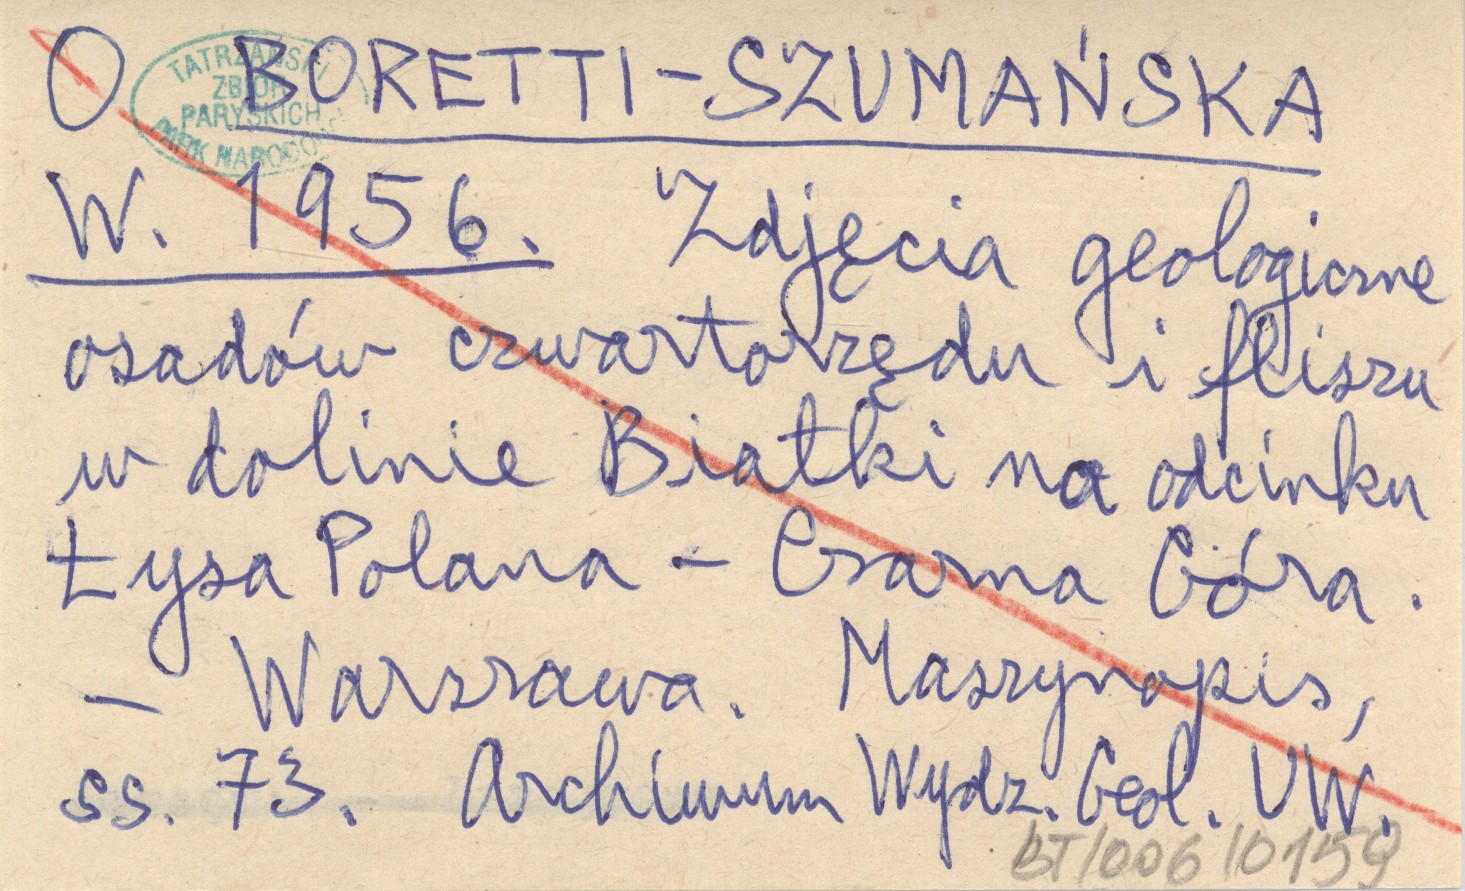 O BORETTI-SZUMAŃSKA
TATRZAŃSKI
ZBIÓR
PARYSKICH
PARK NARODOWY
W. 1956. Zdjęcia geologiczne
osadów czwartorzędu i fliszu
w dolinie Białki na odcinku
Łysa Polana - Czarna Góra.
- Warszawa. Maszynopis,
ss. 73. Archiwum Wydz. Geol. UW.
BT/006/0159